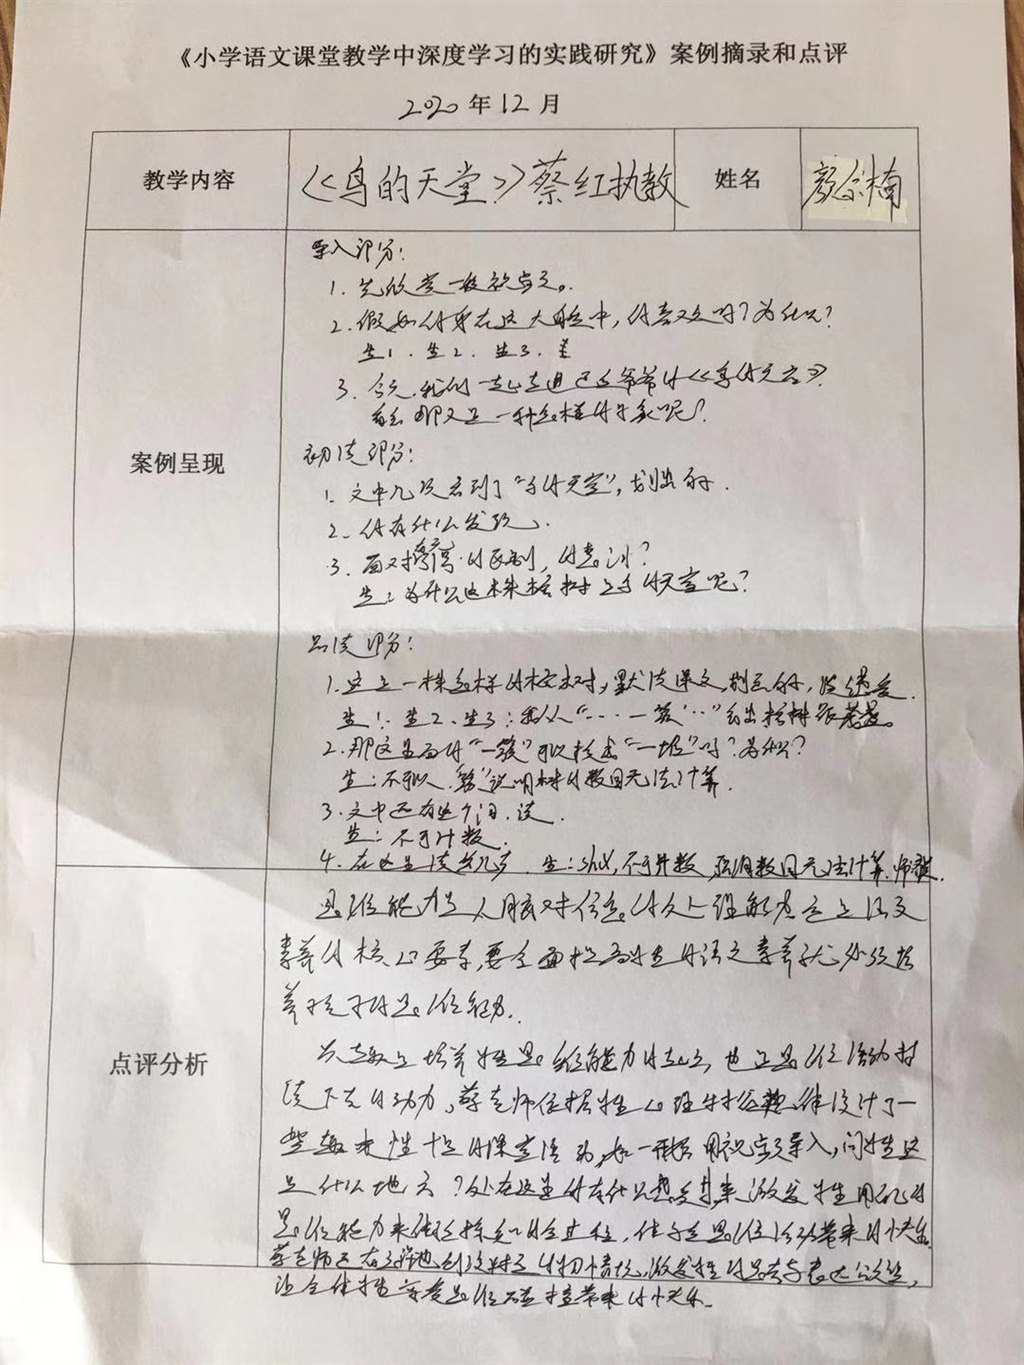 《小学语文课堂教学中深度学习的实践研究》案例摘录和点评
2020年12月
教学内容 《鸟的天堂》蔡红执教 姓名 楠
案例呈现
导入部分：
1. 先欣赏一段视频。
2. 假如你身在这大自然中，你喜欢吗？为什么？
生1. 生2. 生3.
3. 今天，我们一起走进巴金爷爷的《鸟的天堂》
那又是一种怎样的景象呢？
初读部分：
1. 文中几次看到了“鸟的天堂”，划出的
2. 你有什么发现。
3. 面对 的区别，你 ？
生：为什么这株榕树是鸟的天堂呢？
品读部分：
1. 这是一株怎样的榕树，默读课文，划出的，谈感受。
生1. 生2. 生3：我从“……一簇……”看出榕树很茂盛。
2. 那这里面的“一簇”可以换成“一堆”吗？为什么？
生：不可以，说明树的数目无法计算。
3. 文中还有这个词，读。
生：不可计数
4. 在这里读 生：shǔ，不可计数，强调数目无法计算。师
点评分析
思维能力是人脑对信息的 理解 是语文
素养的核心要素，要全面提高学生的语文素养就必须培
养孩子的思维能力。
兴趣是培养学生思维能力的起点，也是思维活动持
续下去的动力，蔡老师依据学生心理特征规律设计了一
些趣味性十足的课堂活动，如一开始用视频导入，问学生这
是什么地方？处在这里你有什么感受来激发学生用 的
思维能力来 探究的全过程，体会思维活动带来的快乐。
蔡老师还有 地创设 情境，激发学生的思考与表达欲望，
让全体学生享受思维碰撞带来的快乐。